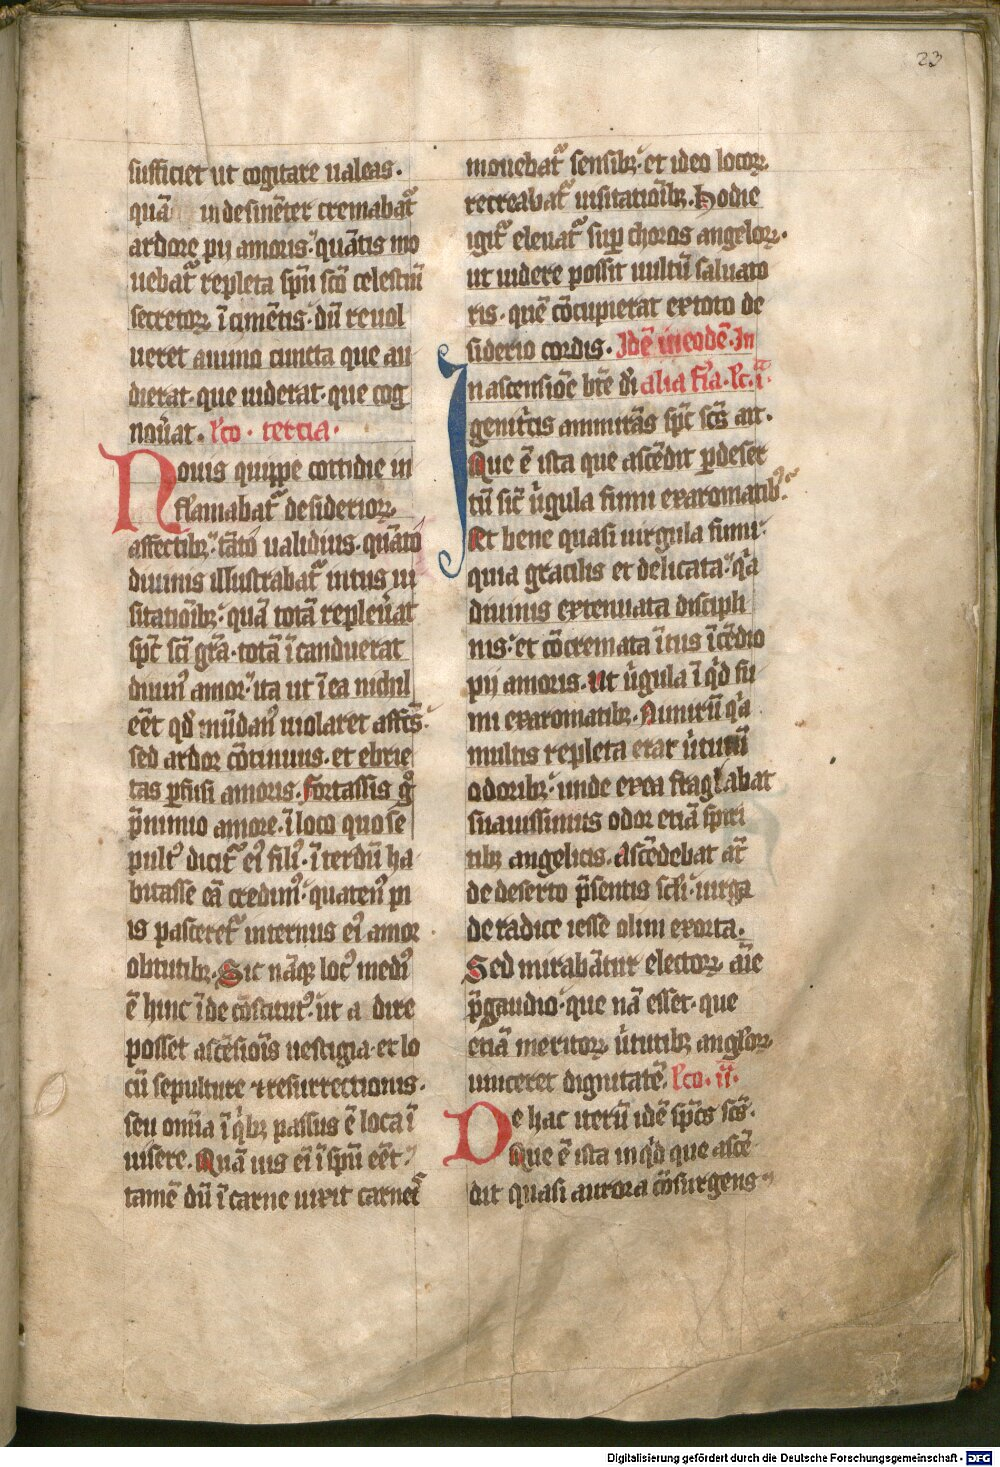 23
sufficiet ut cogitare ualeas.
quā indesinēter cremabat᷑
ardore pij amoris. quātis mo
uebat᷑ repleta sp̄u sc̄o celestiū
secretoꝝ īcimētis. dū reuol
ueret animo cuncta que au
dierat. que uiderat. que cog
nou̾at. Lc̄o. tertia.
Nouis quippe cottidie in
flamabat᷑ desiderioꝝ
affectibꝫ. tāto ualidius. quāto
diuinis illustrabat᷑ intus ui
sitatiōibꝫ. quā totā repleu̾at
sp̄c sc̄i gr̄a. totā īcanduerat
diuinꝰ amor. ita ut ī ea nichil
eēt qđ mūdanꝰ uiolaret affc̄s.
sed ardor cōtinuus. et ebrie
tas ꝑfusi amoris. Fortassis gͦ
p̄ nimio amore. ī loco quo se
pultꝰ dicit᷑ eiꝰ filiꝰ. īterdū ha
bitasse eā credimꝰ. quatenꝰ pi
is pasceret᷑ internus eiꝰ amor
obtutibꝫ. Sic nāqꝫ locꝰ mediꝰ
ē hinc īde cōstitutꝰ. ut adire
posset ascēsiōis uestigia. et lo
cū sepulture ⁊ resurrectionis.
seu omīa ī qͥbꝫ passus ē loca ī
uisere. Quāuis ei ī sp̄u eēt
tamē dū ī carne uixit carneis
mouebat᷑ sensibꝫ. et ideo locoꝝ
recreabat᷑ uisitatiōibꝫ. Hodie
igit᷑ eleuat᷑ suꝑ choros angeloꝝ.
ut uidere possit uultū saluato
ris. quē cōcupierat ex toto de
siderio cordis. Idē in eodē. In
In ascensiōe bt̄e d̄i alia f̄ia. Lc̄. i.
genitͥcis ammirās sp̄c sc̄s ait.
Que ē ista que ascēdit ꝑ deser
tū sic̄ uͥgula fumi ex aromatibꝰ.
Et bene quasi uirgula fumi.
quia gracilis et delicata. qͥa
diuinis extenuata discipli
nis. et cōcremata ītus īcēdio
pij amoris. Ut uͥgula īqͥd fu
mi ex aromatibꝫ. Nimirū qͥa
multis repleta erat uͥtutū
odoribꝫ. unde ex ea fraglabat
suauissimus odor etiā spiri
tibꝫ angelicis. Ascēdebat at᷑
de deserto p̄sentis sc̄li. uirga
de radice iesse olim exorta.
Sed mirabātur electoꝝ aīe
p̄ gaudio. que nā esset. que
etiā meritoꝝ uͥtutibꝫ angl̾oꝝ
uinceret dignitatē. Lc̄o. ii.
De hac iterū idē sp̄cs sc̄s.
Que ē ista inqͥd que ascē
dit quasi aurora cōsurgens
Digitalisierung gefördert durch die Deutsche Forschungsgemeinschaft - DFG